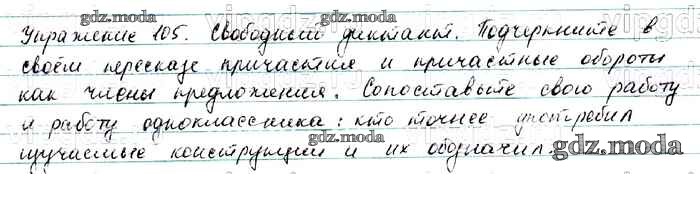 Упражнение 105. Свободный диктант. Подчеркните в
своём пересказе причастия и причастные обороты
как члены предложения. Сопоставьте свою работу
и работу одноклассника: кто точнее употребил
изучаемые конструкции и их обозначил.
gdz.moda
gdz.moda
gdz.moda
gdz.moda
gdz.moda